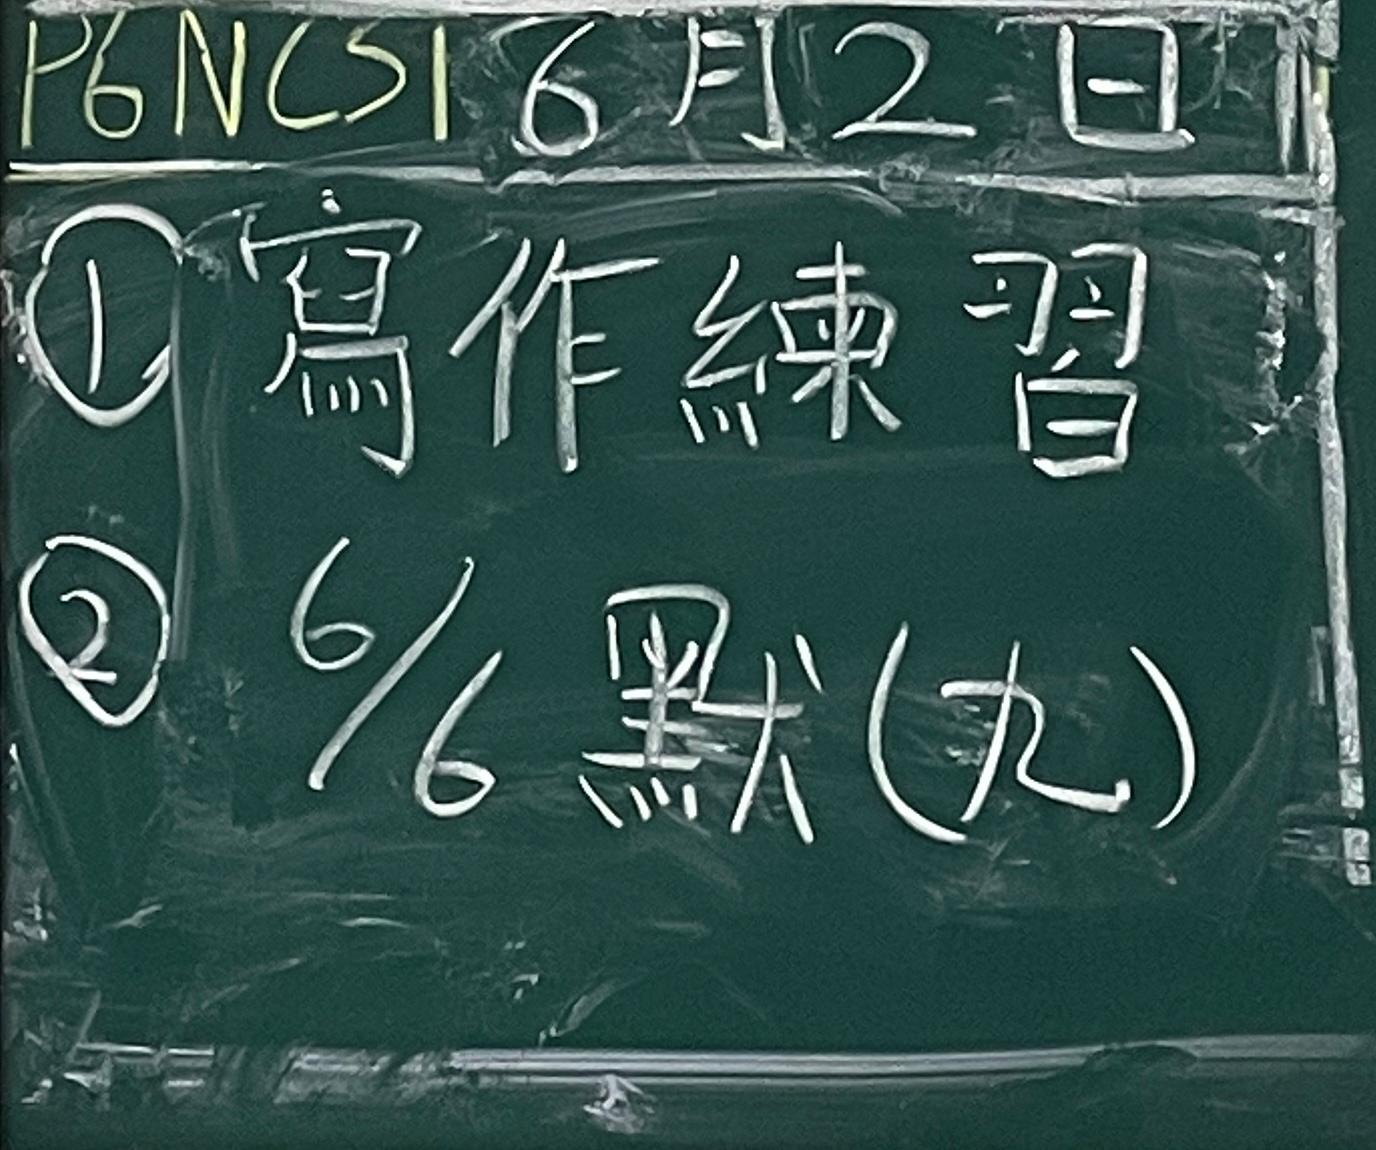 P6NCS1 6月2日
① 寫作練習
② 6/6 默(九)